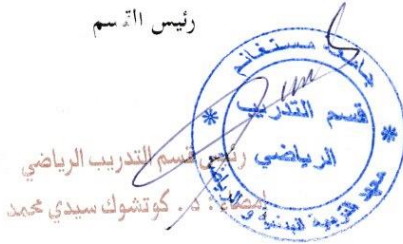 رئيس القسم
جامعة مستغانم
قسم التدريب
الرياضي
معهد التربية البدنية و الرياضية
رئيس قسم التدريب الرياضي
إمضاء: د. كوتشوك سيدي محمد